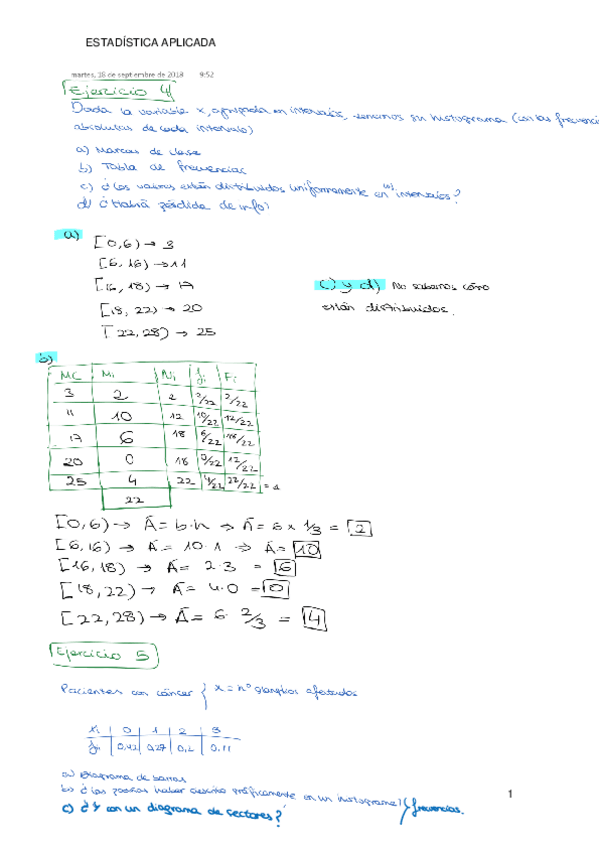 ESTADÍSTICA APLICADA
martes, 18 de septiembre de 2018 9:52
Ejercicio 4
Dada la variable x, agrupada en intervalos, tenemos su histograma (con las frecuencias
absolutas de cada intervalo)
a) Marcas de clase
b) Tabla de frecuencias
c) ¿Los valores están distribuidos uniformemente en los intervalos?
d) ¿Habrá pérdida de info?
a)
[0,6) → 3
[6,16) → 11
[16,18) → 17
[18,22) → 20
[22,28) → 25
c) y d) No sabemos cómo
están distribuidos.
b)
MC Mi Ni fi Fi
3 2 2 2/22 2/22
11 10 12 10/22 12/22
17 6 18 6/22 18/22
20 0 18 0/22 12/22
25 4 22 4/22 22/22 = 1
22
[0,6) → Á = b·h → Á = 6 x 1/3 = 2
[6,16) → Á = 10·1 → Á = 10
[16,18) → Á = 2·3 = 6
[18,22) → Á = 4·0 = 0
[22,28) → Á = 6· 2/3 = 4
Ejercicio 5
Pacientes con cáncer { x = nº ganglios afectados
xi 0 1 2 3
fi 0,42 0,27 0,2 0,11
a) Diagrama de barras
b) ¿Los podrías haber descrito gráficamente en un histograma?
c) ¿Y con un diagrama de sectores? } frecuencias.
1